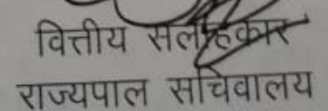 वित्तीय सलाहकार
राज्यपाल सचिवालय